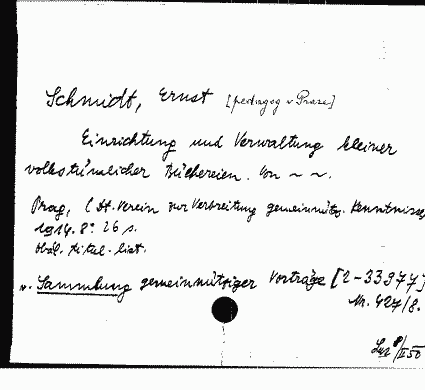 Schmidt, Ernst [pedagog v Praze]
Einrichtung und Verwaltung kleiner
volkstümlicher Büchereien. Von ~ ~.
Prag, Dt. Verein zur Verbreitung gemeinnütz. Kenntnisse,
1914. 8° 26 s.
Obál. titul. list.
v. Sammlung gemeinnütziger Vorträge [2-33977]
Nr. 427/8.